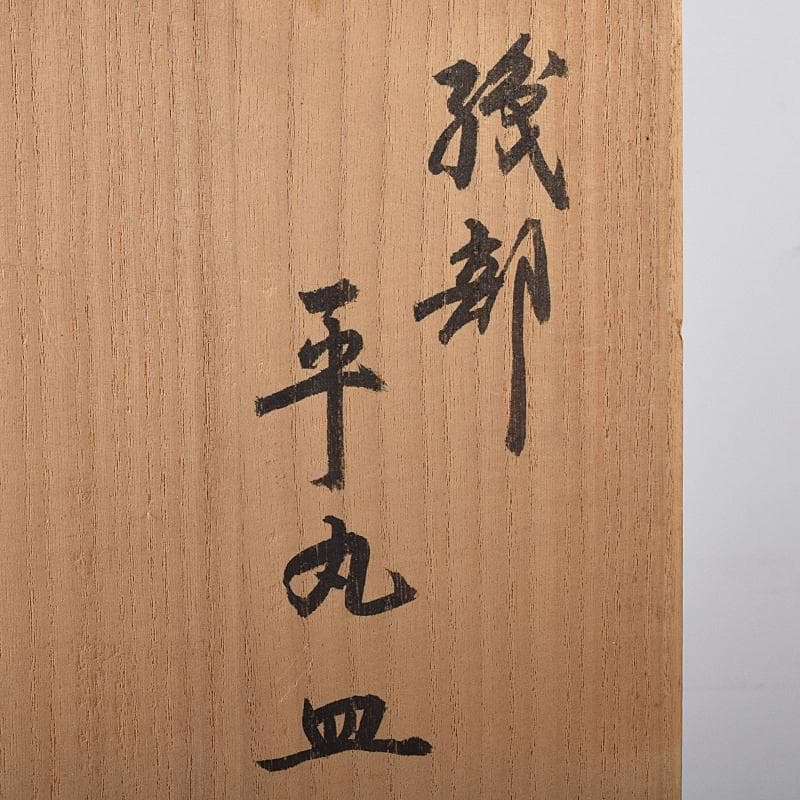 織部
平丸皿